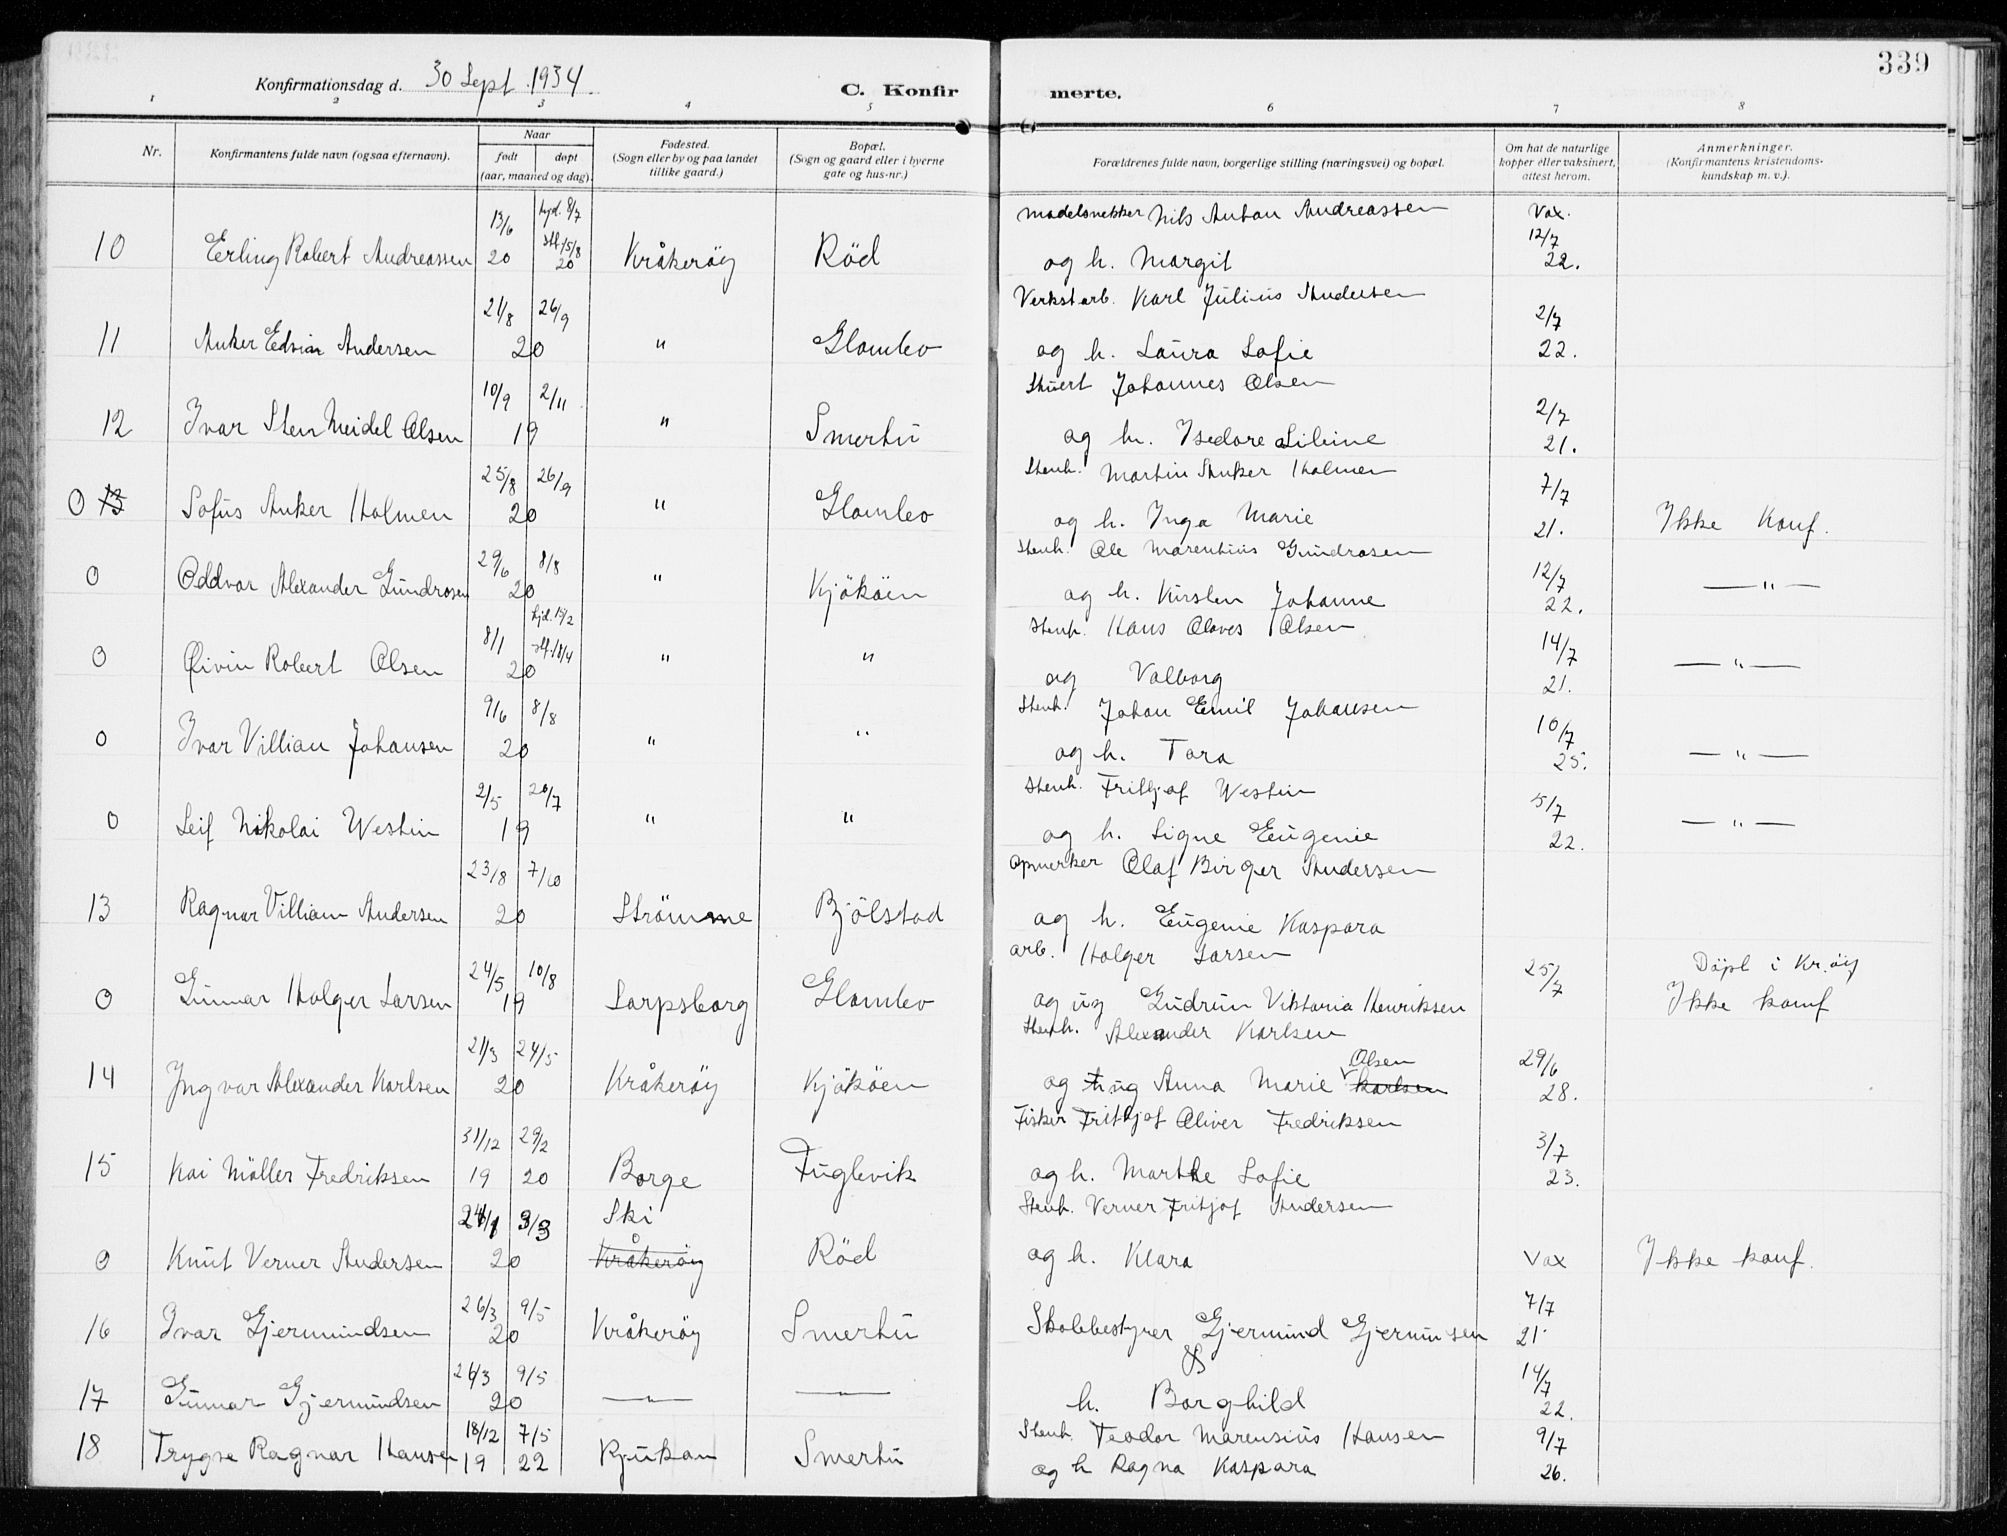 339
Konfirmationsdag d. 30 Sept. 1934.
C. Konfir merte.
1 2 3 4 5 6 7 8
Nr.
Konfirmantens fulde navn (ogsaa efternavn).
Naar
født døpt
(aar, maaned og dag).
Fødested.
(Sogn eller by og paa landet
tillike gaard.)
Bopæl.
(Sogn og gaard eller i byerne
gate og hus-nr.)
Forældrenes fulde navn, borgerlige stilling (næringsvei) og bopæl.
Om hat de naturlige
kopper eller vaksinert,
attest herom.
Anmerkninger.
(Konfirmantens kristendoms-
kundskap m. v.).
13/6 hjd. 8/7 modelsnekker Nils Anton Andreassen Vax.
stf. 15/8 12/7
10 Erling Robert Andreassen 20 20 Kråkeröy Röd og h. Margit 22.
21/8 26/9 Verkstarb. Karl Julius Andersen 2/7
11 Anker Edvin Andersen 20 " Glombo og h. Laura Sofie 22.
10/9 2/11 Stuert Johannes Olsen 2/7
12 Ivar Sten Meidel Olsen 19 " Smertu og h. Isedore Liline 21.
25/8 26/9 Stenh. Martin Anker Holmen 7/7
0 13 Sofus Anker Holmen 20 " Glombo og h. Inga Marie 21. Ikke Konf.
29/6 8/8 Stenh. Ole Marentius Gundrosen 12/7
0 Oddvar Alexander Gundrosen 20 " Kjököen og h. Kirsten Johanne 22. — " —
8/1 hjd. 15/2 Stenh. Hans Oloves Olsen 14/7
stf. 18/4
0 Öivin Robert Olsen 20 " " og Valborg 21. — " —
9/6 8/8 Stenh. Johan Emil Johansen 10/7
0 Ivar Villian Johansen 20 " " og h. Tora 25. — " —
2/5 20/7 Stenh. Frithjof Westin 5/7
0 Leif Nikolai Westin 19 " " og h. Signe Eugenie 22. — " —
23/8 7/10 Opmerker Olaf Birger Andersen
13 Ragnar Villiam Andersen 20 Strömme Bjölstad og h. Eugenie Kaspara
24/5 10/8 arb. Holger Larsen 25/7 Döpt i Kr.öy
0 Gunnar Holger Larsen 19 Sarpsborg Glombo og ug Gudrun Viktoria Henriksen Ikke konf
21/3 24/5 Stenh. Alexander Karlsen 29/6
Olsen
14 Ingvar Alexander Karlsen 20 Kråkeröy Kjököen og h. ug Anna Marie Karlsen 28.
31/12 29/2 Fisker Frithjof Oliver Fredriksen 3/7
15 Kai Möller Fredriksen 19 20 Borge Fuglevik og h. Marthe Sofie 23.
24/1 3/3 Ski Stenh. Verner Fritjof Andersen
0 Knut Verner Andersen 20 Kråkeröy Röd og h. Klara Vax Ikke konf.
26/3 9/5 7/7
16 Ivar Gjermundsen 20 Kråkeröy Smertu Skolebestyrer Gjermund Gjermunsen 21.
26/3 9/5 & 14/7
17 Gunnar Gjermundsen 20 — " — —— h. Borghild 22.
18/12 7/5 Stenh. Teodor Marensius Hansen 9/7
18 Trygve Ragnar Hansen 19 22 Rjukan Smertu og h Ragna Kaspara 26.